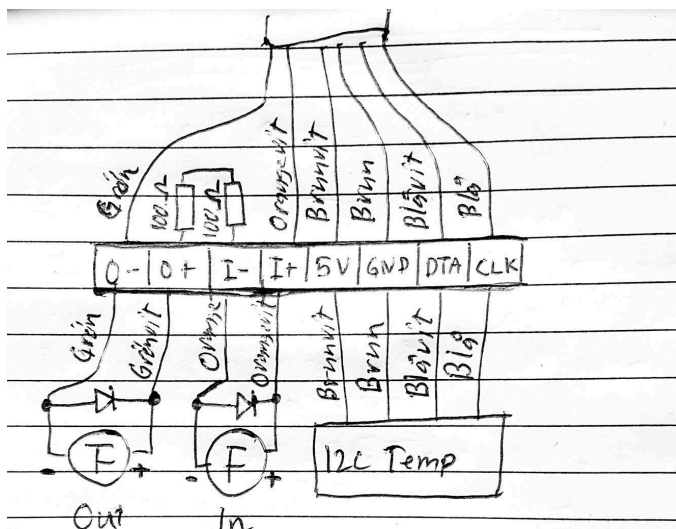 Grön 100Ω 100Ω Orangevit Brunvit Brun Blåvit Blå
O- O+ I- I+ 5V GND DTA CLK
Grön Grönvit Orange Orangevit Brunvit Brun Blåvit Blå
- F + - F + I2C Temp
Out In